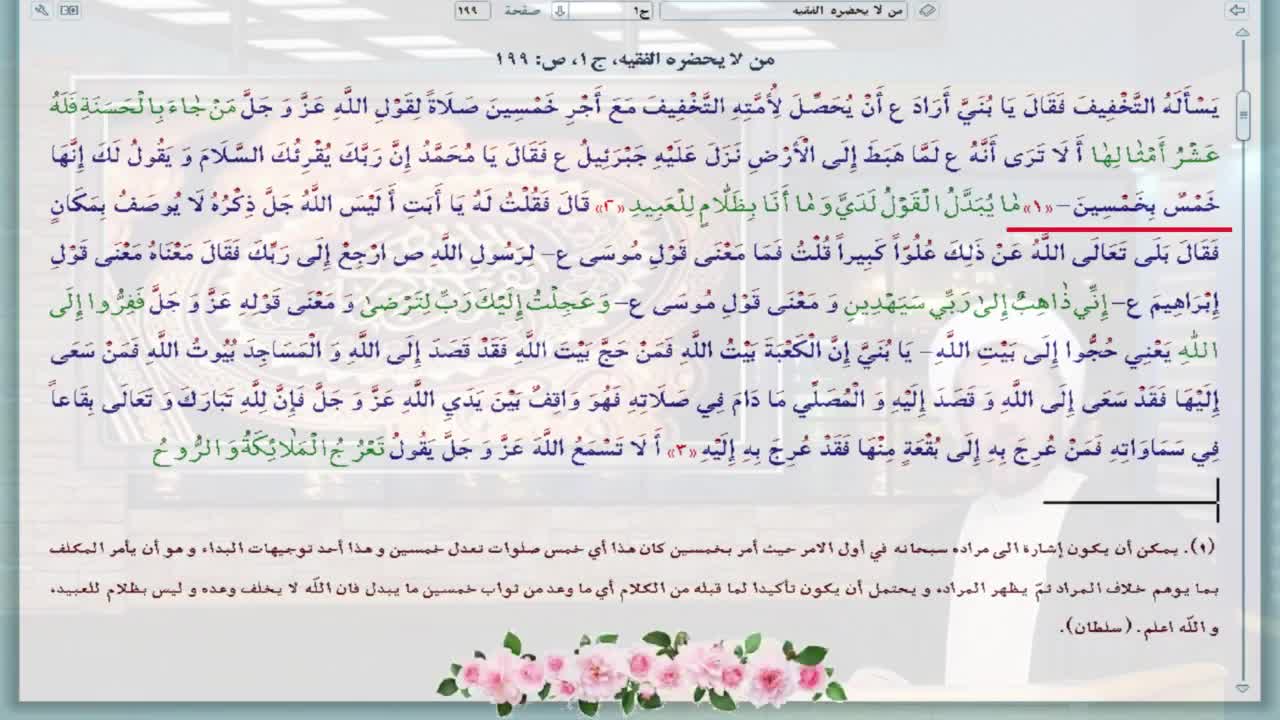 من لا يحضره الفقيه ج١ صفحة ١٩٩
من لا يحضره الفقيه، ج١، ص: ١٩٩
يَسْأَلُهُ التَّخْفِيفَ فَقَالَ يَا بُنَيَّ أَرَادَ ع أَنْ يُحَصِّلَ لِأُمَّتِهِ التَّخْفِيفَ مَعَ أَجْرِ خَمْسِينَ صَلَاةً لِقَوْلِ اللَّهِ عَزَّ وَ جَلَّ مَنْ جٰاءَ بِالْحَسَنَةِ فَلَهُ
عَشْرُ أَمْثٰالِهٰا أَ لَا تَرَى أَنَّهُ ع لَمَّا هَبَطَ إِلَى الْأَرْضِ نَزَلَ عَلَيْهِ جَبْرَئِيلُ ع فَقَالَ يَا مُحَمَّدُ إِنَّ رَبَّكَ يُقْرِئُكَ السَّلَامَ وَ يَقُولُ لَكَ إِنَّهَا
خَمْسٌ بِخَمْسِينَ- «١» مٰا يُبَدَّلُ الْقَوْلُ لَدَيَّ وَ مٰا أَنَا بِظَلّٰامٍ لِلْعَبِيدِ «٢» قَالَ فَقُلْتُ لَهُ يَا أَبَتِ أَ لَيْسَ اللَّهُ جَلَّ ذِكْرُهُ لَا يُوصَفُ بِمَكَانٍ
فَقَالَ بَلَى تَعَالَى اللَّهُ عَنْ ذَلِكَ عُلُوّاً كَبِيراً قُلْتُ فَمَا مَعْنَى قَوْلِ مُوسَى ع- لِرَسُولِ اللَّهِ ص ارْجِعْ إِلَى رَبِّكَ فَقَالَ مَعْنَاهُ مَعْنَى قَوْلِ
إِبْرَاهِيمَ ع- إِنِّي ذٰاهِبٌ إِلىٰ رَبِّي سَيَهْدِينِ وَ مَعْنَى قَوْلِ مُوسَى ع- وَ عَجِلْتُ إِلَيْكَ رَبِّ لِتَرْضىٰ وَ مَعْنَى قَوْلِهِ عَزَّ وَ جَلَّ فَفِرُّوا إِلَى
اللّٰهِ يَعْنِي حُجُّوا إِلَى بَيْتِ اللَّهِ- يَا بُنَيَّ إِنَّ الْكَعْبَةَ بَيْتُ اللَّهِ فَمَنْ حَجَّ بَيْتَ اللَّهِ فَقَدْ قَصَدَ إِلَى اللَّهِ وَ الْمَسَاجِدَ بُيُوتُ اللَّهِ فَمَنْ سَعَى
إِلَيْهَا فَقَدْ سَعَى إِلَى اللَّهِ وَ قَصَدَ إِلَيْهِ وَ الْمُصَلِّي مَا دَامَ فِي صَلَاتِهِ فَهُوَ وَاقِفٌ بَيْنَ يَدَيِ اللَّهِ عَزَّ وَ جَلَّ فَإِنَّ لِلَّهِ تَبَارَكَ وَ تَعَالَى بِقَاعاً
فِي سَمَاوَاتِهِ فَمَنْ عُرِجَ بِهِ إِلَى بُقْعَةٍ مِنْهَا فَقَدْ عُرِجَ بِهِ إِلَيْهِ «٣» أَ لَا تَسْمَعُ اللَّهَ عَزَّ وَ جَلَّ يَقُولُ تَعْرُجُ الْمَلٰائِكَةُ وَ الرُّوحُ
(١). يمكن أن يكون إشارة الى مراده سبحانه في أول الامر حيث أمر بخمسين كان هذا أي خمس صلوات تعدل خمسين و هذا أحد توجيهات البداء و هو أن يأمر المكلف
بما يوهم خلاف المراد ثمّ يظهر المراد، و يحتمل أن يكون تأكيدا لما قبله من الكلام أي ما وعد من ثواب خمسين ما يبدل فان اللّه لا يخلف وعده و ليس بظلام للعبيد،
و اللّه اعلم. (سلطان).